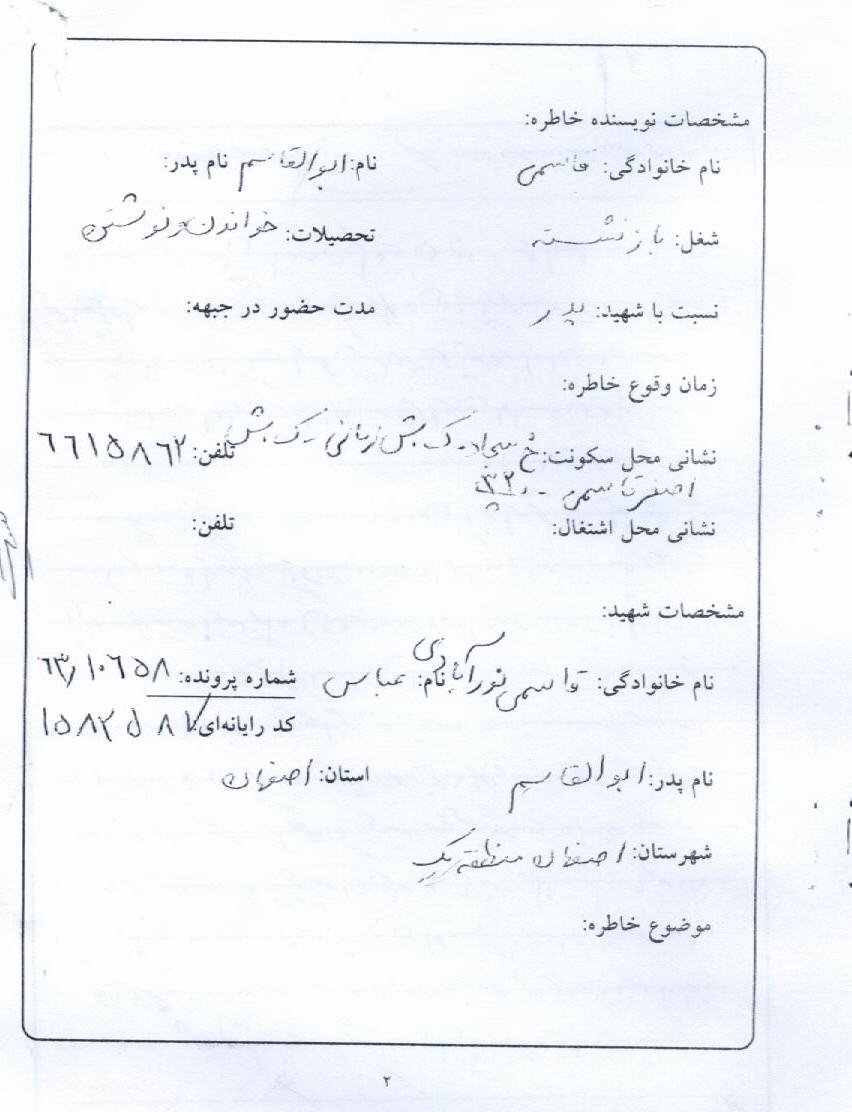 مشخصات نویسنده خاطره:
نام خانوادگی: قاسمی نام: ابوالقاسم نام پدر:
شغل: بازنشسته تحصیلات: خواندن و نوشتن
نسبت با شهید: پدر مدت حضور در جبهه:
زمان وقوع خاطره:
نشانی محل سکونت: خ سجاد ک تلفن: ۶۶۱۵۸۶۲
اصغر قاسمی - پ ۳۲
نشانی محل اشتغال: تلفن:
مشخصات شهید:
نام خانوادگی: قاسمی نورآبادی نام: عباس شماره پرونده: ۶۳/۱۰۶۵۸
کد رایانه‌ای:
نام پدر: ابوالقاسم استان: اصفهان
شهرستان: اصفهان منطقه یک
موضوع خاطره:
۲